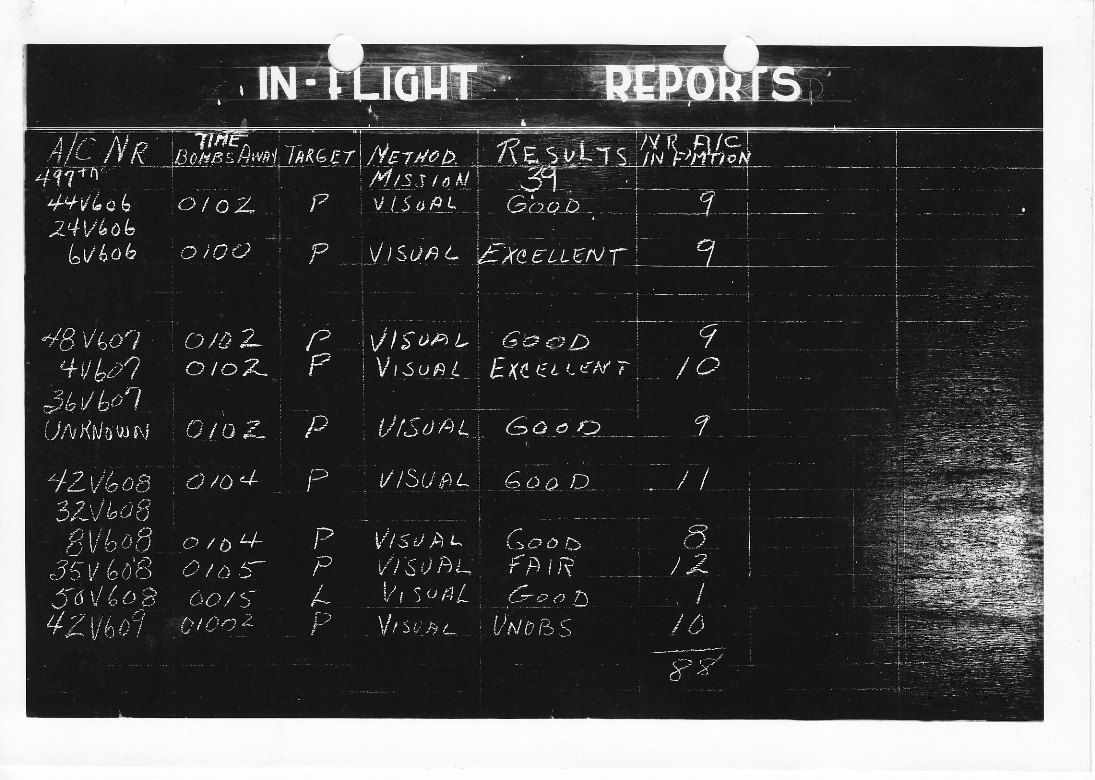 IN-FLIGHT REPORTS
A/C NR TIME BOMBS AWAY TARGET METHOD RESULTS NR A/C IN F'MTION
497TH MISSION 39
44V606 0102 P VISUAL GOOD 9
24V606
6V606 0100 P VISUAL EXCELLENT 9
48V607 0102 P VISUAL GOOD 9
4V607 0102 P VISUAL EXCELLENT 10
36V607
UNKNOWN 0102 P VISUAL GOOD 9
42V608 0104 P VISUAL GOOD 11
32V608
8V608 0104 P VISUAL GOOD 8
35V608 0105 P VISUAL FAIR 12
50V608 0015 L VISUAL GOOD 1
42V609 01002 P VISUAL UNOBS 10
88